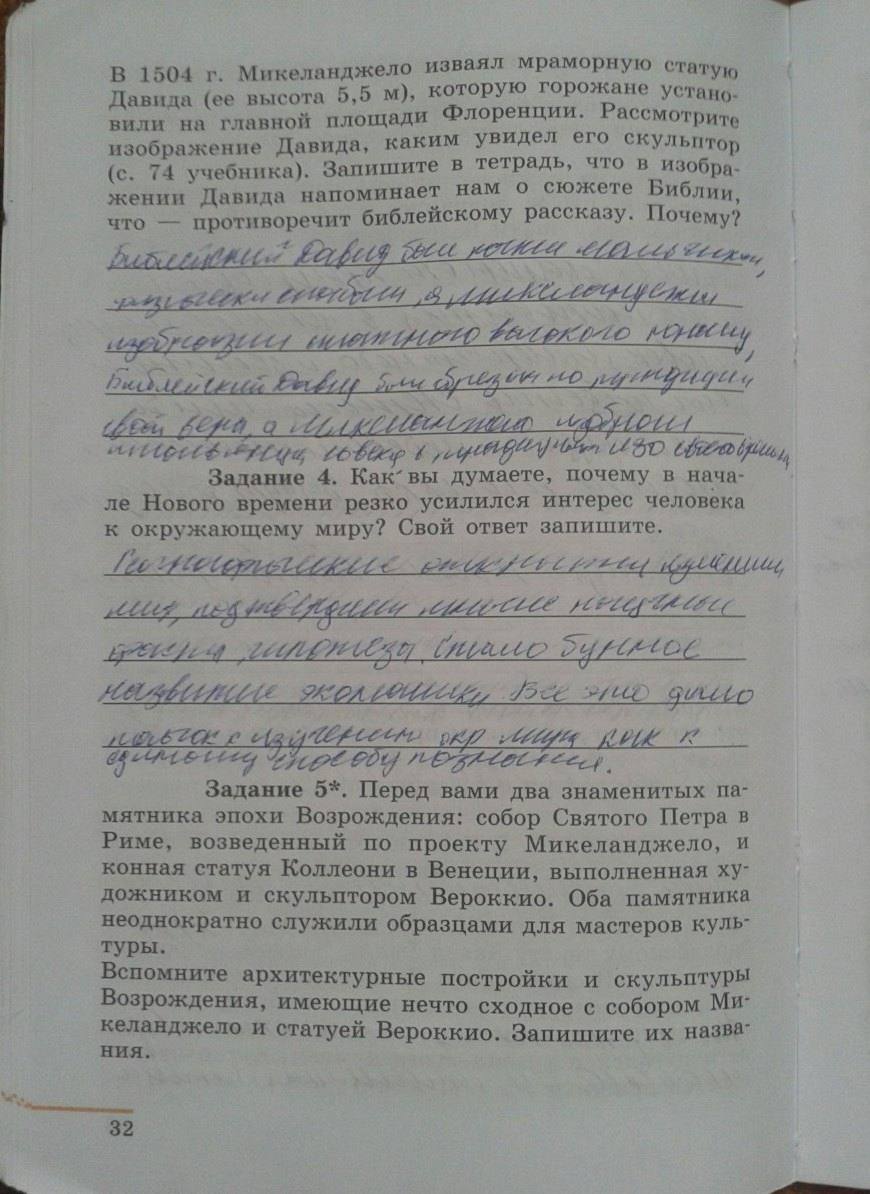 В 1504 г. Микеланджело изваял мраморную статую
Давида (ее высота 5,5 м), которую горожане устано-
вили на главной площади Флоренции. Рассмотрите
изображение Давида, каким увидел его скульптор
(с. 74 учебника). Запишите в тетрадь, что в изобра-
жении Давида напоминает нам о сюжете Библии,
что — противоречит библейскому рассказу. Почему?
Библейский Давид был мальчиком,
а Микеланджело
изобразил высокого юношу,
Библейский Давид был образцом по традиции
своей веры, а Микеланджело изобразил
Задание 4. Как вы думаете, почему в нача-
ле Нового времени резко усилился интерес человека
к окружающему миру? Свой ответ запишите.
Географические открытия изменили
мир, подтвердили многие научные
факты, гипотезы. Стало бурное
развитие экономики. Все это дало
толчок к изучению окр мира как к
единому способу познания.
Задание 5*. Перед вами два знаменитых па-
мятника эпохи Возрождения: собор Святого Петра в
Риме, возведенный по проекту Микеланджело, и
конная статуя Коллеони в Венеции, выполненная ху-
дожником и скульптором Вероккио. Оба памятника
неоднократно служили образцами для мастеров куль-
туры.
Вспомните архитектурные постройки и скульптуры
Возрождения, имеющие нечто сходное с собором Ми-
келанджело и статуей Вероккио. Запишите их назва-
ния.
32